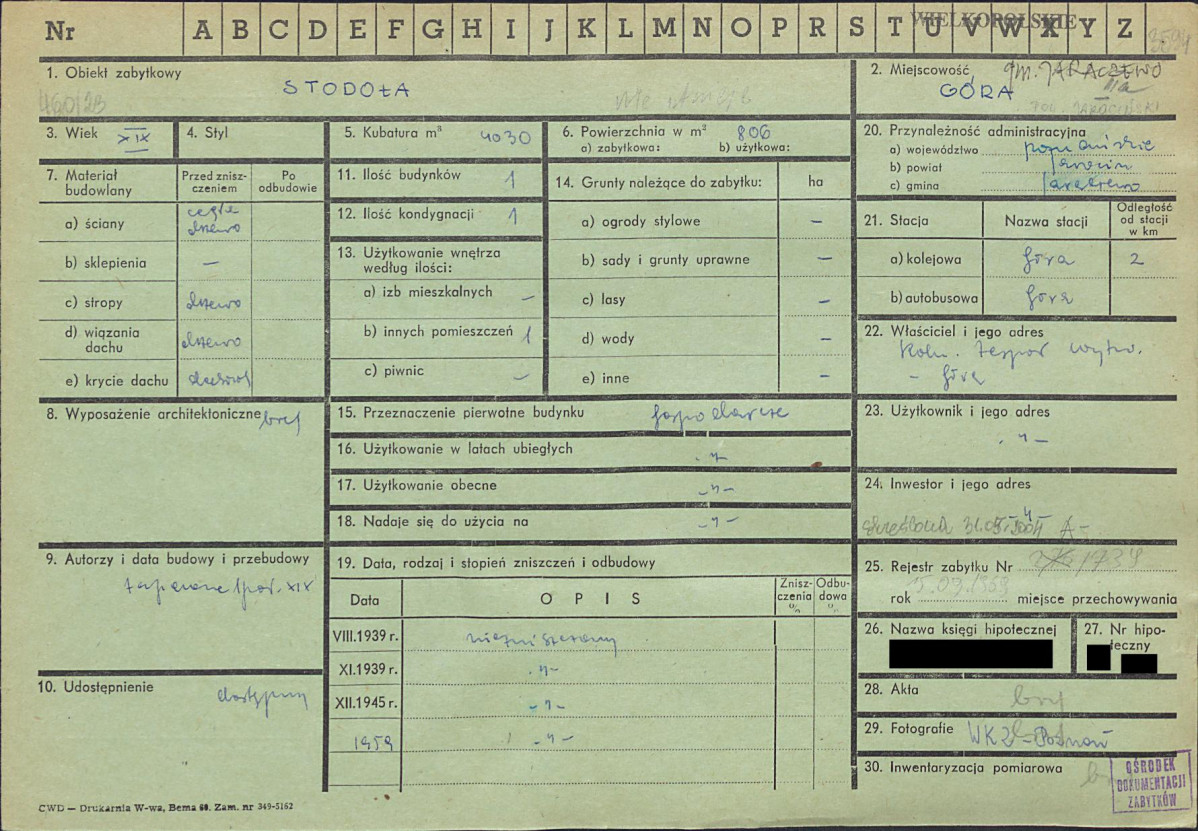 Nr A B C D E F G H I J K L M N O P R S T U V W X Y Z
WIELKOPOLSKIE
3594
1. Obiekt zabytkowy
STODOŁA
460/2B
nie istnieje
2. Miejscowość
gm. JARACZEWO
GÓRA
pow. JAROCIŃSKI
3. Wiek
XIX
4. Styl
5. Kubatura m³ 4030
6. Powierzchnia w m² 806
a) zabytkowa: b) użytkowa:
20. Przynależność administracyjna
a) województwo poznańskie
b) powiat Jarocin
c) gmina Jaraczewo
7. Materiał budowlany
Przed znisz-
czeniem
Po
odbudowie
a) ściany cegła
drzewo
b) sklepienia —
c) stropy drzewo
d) wiązania
dachu drzewo
e) krycie dachu dachówk
11. Ilość budynków 1
12. Ilość kondygnacji 1
13. Użytkowanie wnętrza
według ilości:
a) izb mieszkalnych —
b) innych pomieszczeń 1
c) piwnic —
14. Grunty należące do zabytku: ha
a) ogrody stylowe —
b) sady i grunty uprawne —
c) lasy —
d) wody —
e) inne —
21. Stacja Nazwa stacji
Odległość
od stacji
w km
a) kolejowa Góra 2
b) autobusowa Góra
22. Właściciel i jego adres
Roln. Zespół Wytw.
– Góra
8. Wyposażenie architektoniczne brak
15. Przeznaczenie pierwotne budynku gospodarcze
16. Użytkowanie w latach ubiegłych -"-
17. Użytkowanie obecne -"-
18. Nadaje się do użycia na -"-
23. Użytkownik i jego adres
-"-
24. Inwestor i jego adres
-"-
skreślona 31.05.2004
9. Autorzy i data budowy i przebudowy
XIX
19. Data, rodzaj i stopień zniszczeń i odbudowy
Data OPIS
Znisz-
czenia
%
Odbu-
dowa
%
VIII.1939 r. niezniszczony
XI.1939 r. -"-
XII.1945 r. -"-
1959 -"-
10. Udostępnienie dostępny
25. Rejestr zabytku Nr
rok 5.03.1969 miejsce przechowywania
26. Nazwa księgi hipotecznej
27. Nr hipo-
teczny
28. Akta brak
29. Fotografie WKZ – Poznań
30. Inwentaryzacja pomiarowa
OŚRODEK
DOKUMENTACJI
ZABYTKÓW
CWD — Drukarnia W-wa, Bema 60. Zam. nr 349-5162